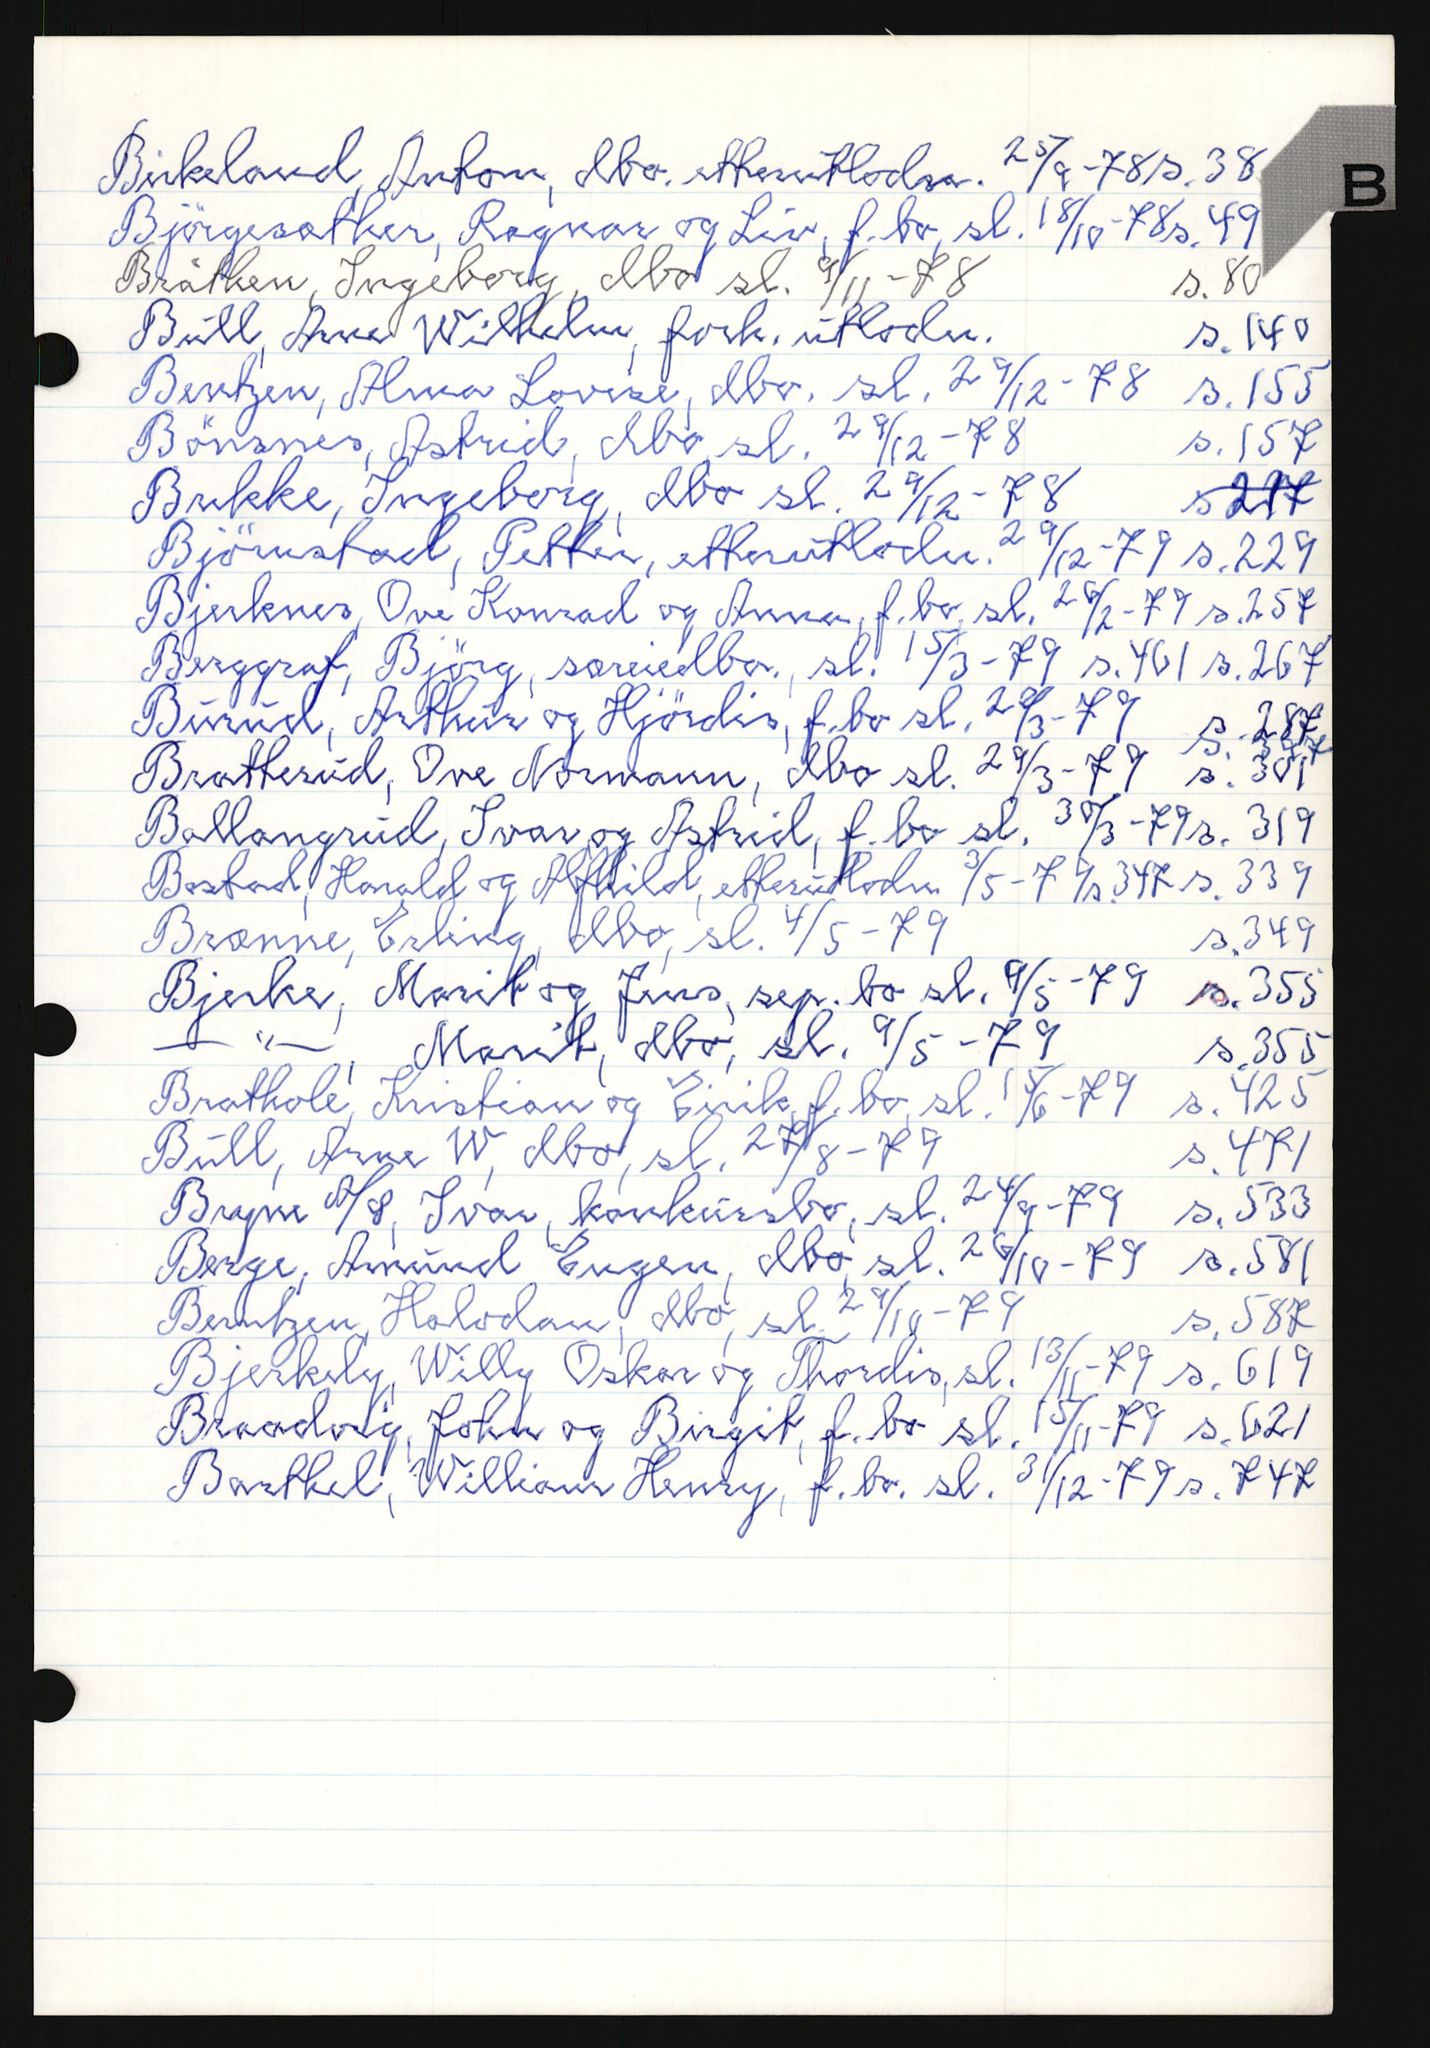 B
Birkeland, Anton, dbo. etterutlodn. 25/9-78 s. 38
Björgesæther, Ragnar og Liv, f. bo, sl. 18/10-78 s. 49
Bråthen, Ingeborg, dbo sl. 9/11-78 s. 80
Bull, Arne Wilhelm, forh. utlodn. s. 140
Bentzen, Alma Lovise, dbo. sl. 29/12-78 s. 155
Bönsnes, Astrid, dbo, sl. 29/12-78 s. 157
Bukke, Ingeborg, dbo sl. 29/12-78 s 217
Björnstad, Petter, etterutlodn. 29/12-79 s. 229
Bjerknes, Ove Konrad og Anna, f. bo, sl. 26/2-79 s. 257
Berggraf, Björg, særeiedbo., sl. 15/3-79 s. 461 s. 267
Burud, Arthur og Hjördis, f. bo sl. 29/3-79 s. 287
Bratterud, Ove Normann, dbo sl. 29/3-79 s. 301
Ballangrud, Ivar og Astrid, f. bo sl. 30/3-79 s. 319
Bostad, Harald og Alfhild, etterutlodn 3/5-79 s. 347 s. 339
Brænne, Erling, dbo, sl. 4/5-79 s. 349
Bjerke, Marit og Jens, sep. bo sl. 9/5-79 s. 355
— " —, Marit, dbo, sl. 9/5-79 s. 355
Brathole, Kristian og Eirik, f. bo, sl. 15/6-79 s. 425
Bull, Arne W, dbo, sl. 27/8-79 s. 471
Bryne A/S, Ivar, konkursbo, sl. 24/9-79 s. 533
Berge, Amund Eugen, dbo, sl. 26/10-79 s. 581
Berntzen, Halvdan, dbo, sl. 29/10-79 s. 587
Bjerkely, Willy Oskar og Thordis, sl. 13/11-79 s. 619
Braadvig, John og Birgit, f. bo sl. 15/11-79 s. 621
Barthel, William Henry, f. bo. sl. 31/12-79 s. 747